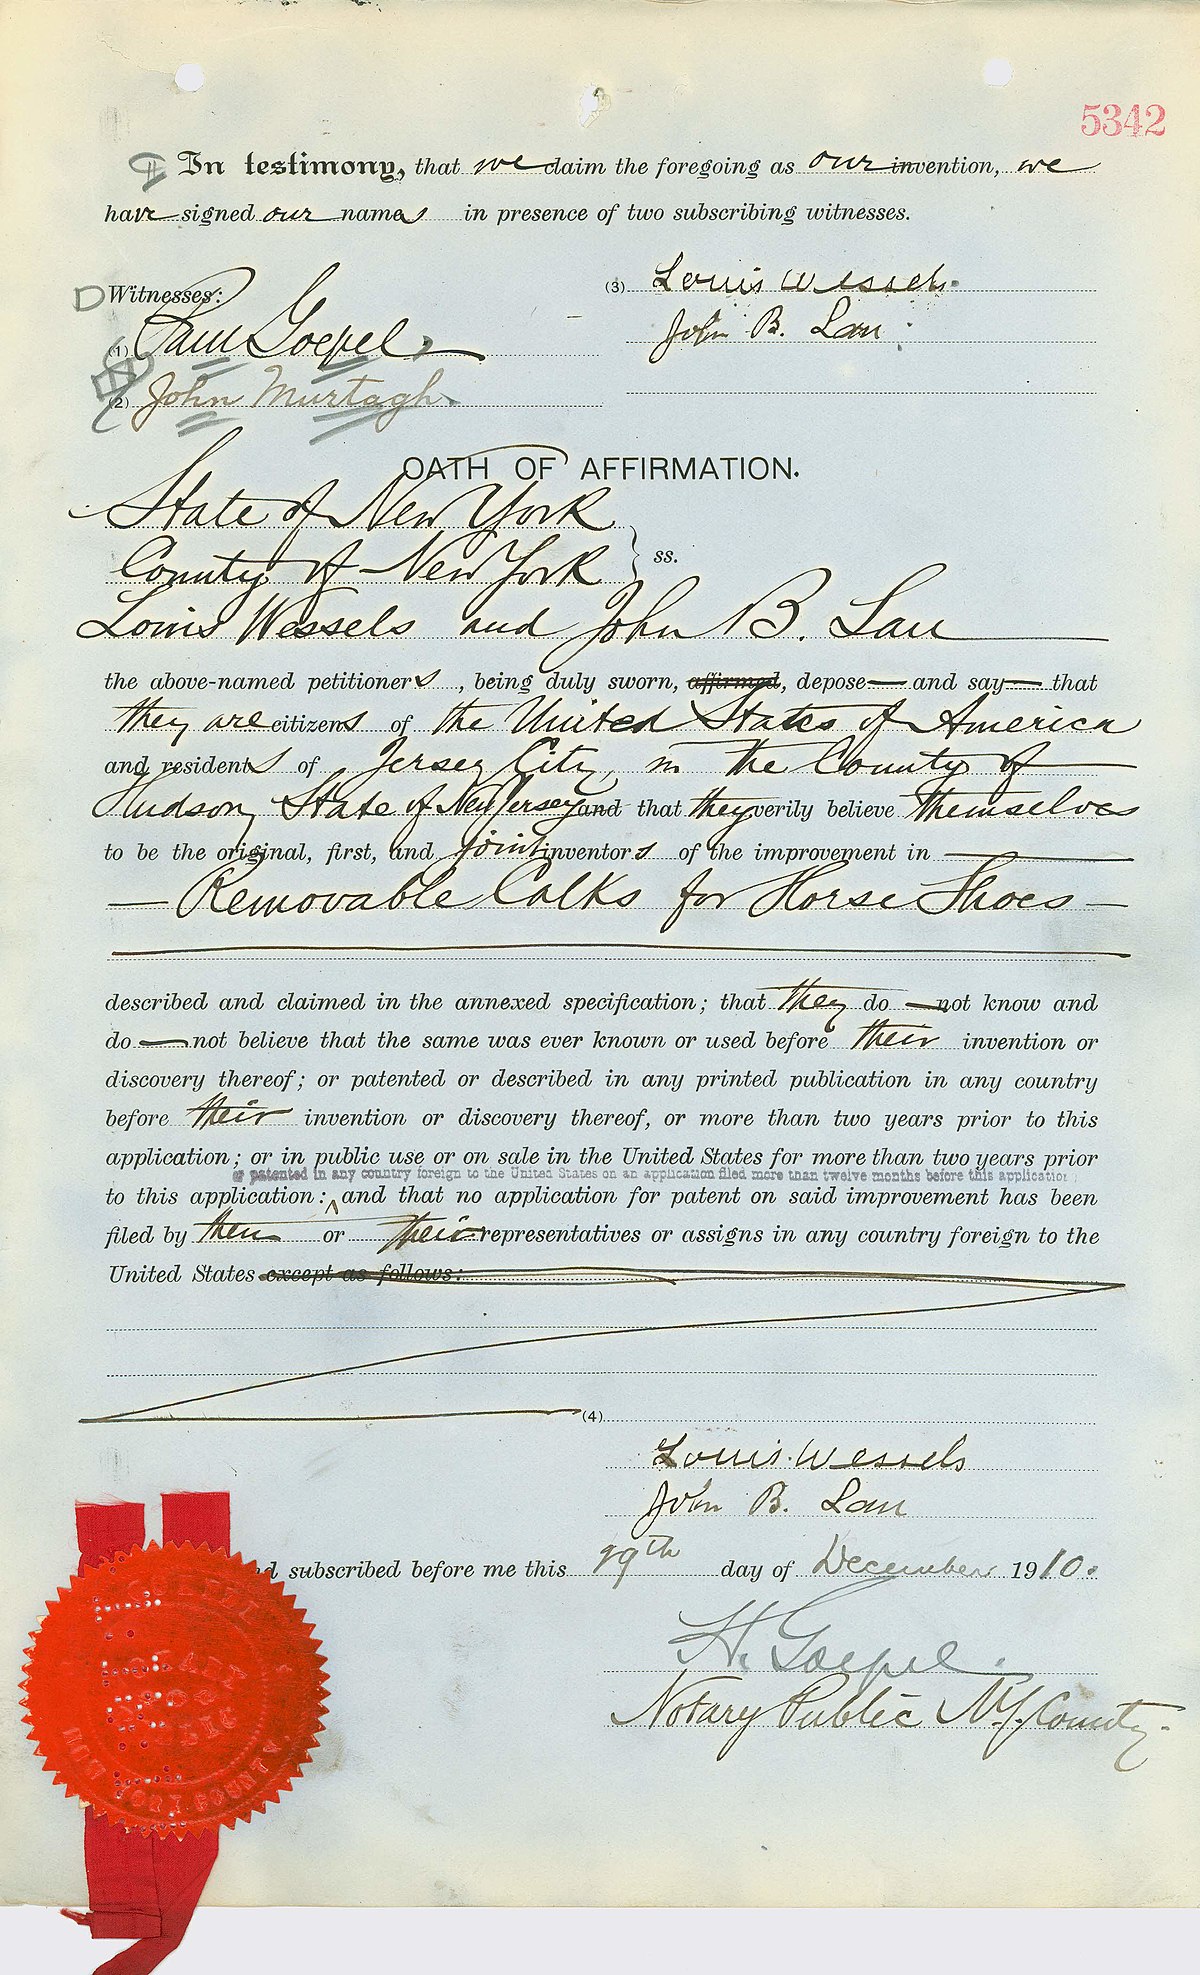 5342
In testimony, that we claim the foregoing as our invention, we
have signed our names in presence of two subscribing witnesses.
Witnesses:
(3) Louis Wessels.
(1) Paul Goepel.
John B. Lau
(2) John Murtagh.
OATH OF AFFIRMATION.
State of New York
County of New York } ss.
Louis Wessels and John B. Lau
the above-named petitioners, being duly sworn, affirmed, depose and say that
they are citizens of the United States of America
and residents of Jersey City, in the County of
Hudson, State of New Jersey and that they verily believe themselves
to be the original, first, and joint inventors of the improvement in
Removable Calks for Horse Shoes
described and claimed in the annexed specification; that they do not know and
do not believe that the same was ever known or used before their invention or
discovery thereof; or patented or described in any printed publication in any country
before their invention or discovery thereof, or more than two years prior to this
application; or in public use or on sale in the United States for more than two years prior
or patented in any country foreign to the United States on an application filed more than twelve months before this application;
to this application: ^ and that no application for patent on said improvement has been
filed by them or their representatives or assigns in any country foreign to the
United States except as follows:
(4)
Louis Wessels
John B. Lau
subscribed before me this 29th day of December 1910.
H. Goepel.
Notary Public N.Y. County.
NOTARY
PUBLIC
NEW YORK COUNTY